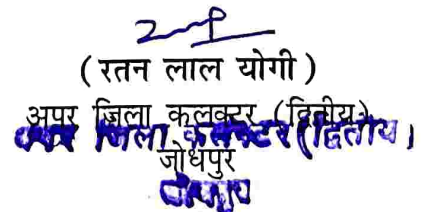 ( रतन लाल योगी )
अपर जिला कलक्टर (द्वितीय)
अपर जिला कलक्टर (द्वितीय)
जोधपुर
जोधपुर